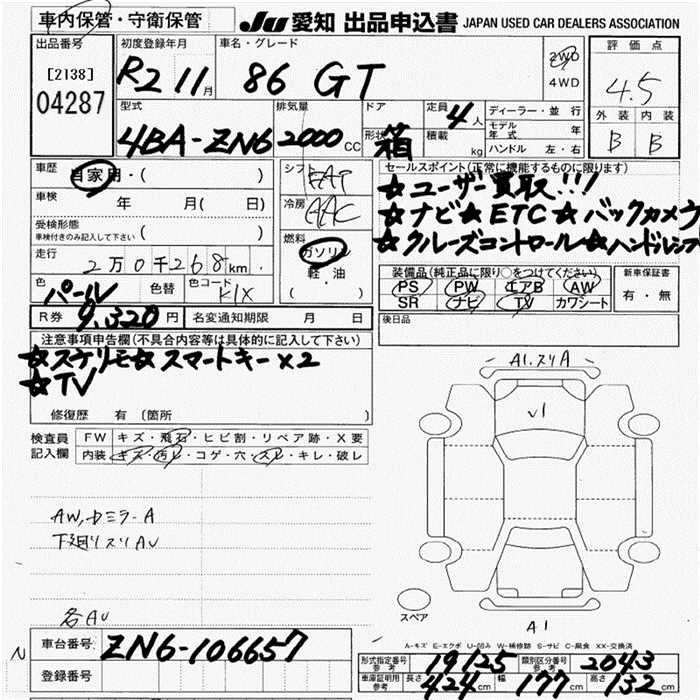 車内保管・守衛保管
JU 愛知 出品申込書 JAPAN USED CAR DEALERS ASSOCIATION
出品番号
[2138]
04287
初度登録年月
R2 11月
車名・グレード
86 GT
2WD
4WD
評価点
4.5
外装 内装
B B
型式
4BA-ZN6
排気量
2000 CC
ドア
形状 箱
定員 4人
積載 kg
ディーラー・並行
モデル年式 年
ハンドル 左・右
車歴
自家用・( )
車検 年 月( 日)
受検形態
車検付きのみ記入して下さい ( )
走行
2万0千268km
色 パール
色替
色コード K1X
シフト FAT
冷房 AAC
燃料
ガソリン
軽・油
( )
セールスポイント(正常に機能するものに限ります)
☆ユーザー買取!!!
☆ナビ☆ETC☆バックカメラ
☆クルーズコントロール☆ハンドルレンズ
装備品(純正品に限り○をつけてください)
PS PW エアB AW
SR ナビ TV カワシート
新車保証書
有・無
R券 9,320円
名変通知期限 月 日
後日品
注意事項申告欄(不具合内容等は具体的に記入して下さい)
☆スケリモ☆スマートキー×2
☆TV
修復歴 有 (箇所 )
検査員記入欄
FW キズ・飛石・ヒビ割・リペア跡・X要
内装 キズ・汚レ・コゲ・穴・スレ・キレ・破レ
AW,カミラーA
下廻リスリAU
各AU
A1.スリA
√1
スペア
A1
A-キズ E-エクボ U-凹み W-補修跡 S-サビ C-腐食 XX-交換済
N
車台番号 ZN6-106657
登録番号
形式指定番号 参考 19125
類別区分番号 参考 2043
車庫証明用 参考 長さ 424cm 幅 177cm 高さ 132cm